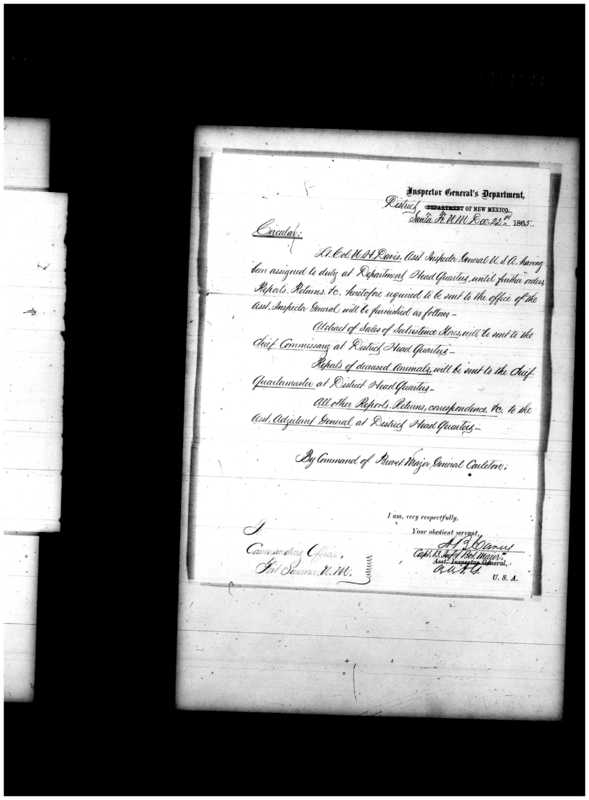 Inspector General's Department,
District
DEPARTMENT OF NEW MEXICO,
Santa Fe N.M. Dec 22nd 1865.
Circular:
Lt. Col. N. H. Davis, Asst. Inspector General U.S.A. having
been assigned to duty at Department Head Quarters, until further orders
Reports, Returns, &c. heretofore required to be sent to the office of the
Asst. Inspector General will be furnished as follows –
Abstract of Sales of Subsistence Stores, will be sent to the
Chief Commissary at District Head Quarters –
Reports of deceased Animals, will be sent to the Chief
Quartermaster at District Head Quarters –
All other Reports, Returns, correspondence &c. to the
Asst. Adjutant General, at District Head Quarters –
By Command of Brevet Major General Carleton:
I am, very respectfully,
Your obedient servant,
Capt. Bvt. Major
Asst. Inspector General,
U. S. A.
Commanding Officer,
Fort Sumner N.M.